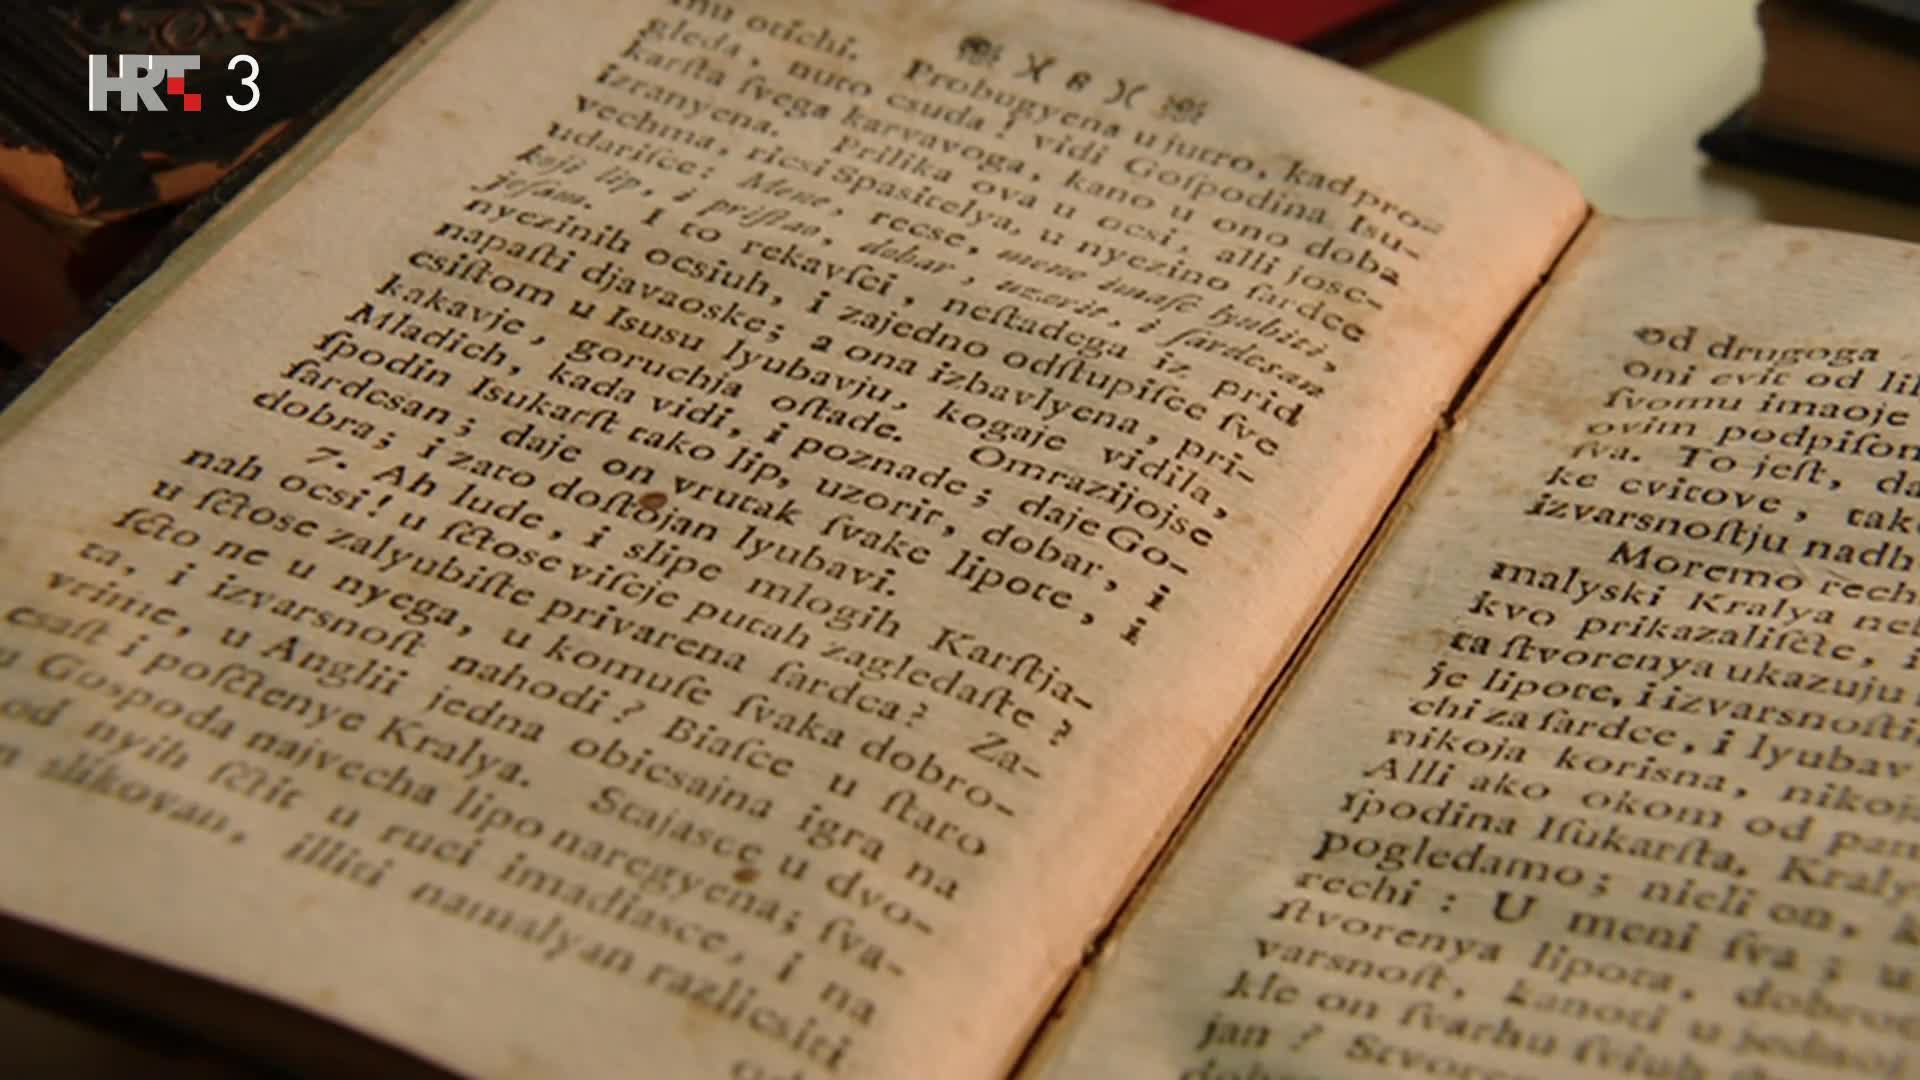 HRT 3
X 8 X
otichi. Probugyena ujutro, kadpro-
gleda, nuto csuda! vidi Goſpodina Isu-
karſta ſvega karvavoga, kano u ono doba
izranyena. Prilika ova u ocsi, alli josc-
vechma, ricsi Spasitelya, u nyezino ſardce
udariſce: Mene, recse, mene imaſe lyubiti,
koji lip, i priſtao, dobar, uzorit, i ſardcsan
jeſam. I to rekavſci, neſtadega iz prid
nyezinih ocsiuh, i zajedno odſtupiſce ſve
napaſti djavaoske; a ona izbavlyena, pri-
csiſtom u Isusu lyubavju, kogaje vidila,
kakavje, goruchja oſtade. Omrazijojse
Mladich, kada vidi, i poznade; daje Go-
ſpodin Isukarſt tako lip, uzorit, dobar, i
ſardcsan; daje on vrutak ſvake lipote, i
dobra; i zato doſtojan lyubavi.
7. Ah lude, i slipe mlogih Karſtja-
nah ocsi! u ſctose viſcje putah zagledaſte?
u ſctose zalyubiſte privarena ſardca? Za-
ſcto ne u nyega, u komuſe ſvaka dobro-
ta, i izvarsnoſt nahodi? Biaſce u ſtaro
vrime, u Anglii jedna obicsajna igra na
csaſt i poſctenye Kralya. Stajasce u dvo-
u Gospoda najvecha lipo naregyena; ſva-
od nyih ſctit u ruci imadiasce, i na
slikovan, illiti namalyan razlicsiti
od drugoga
Oni cvit od lil
ſvomu imaoje
ovim podpiſom
ſva. To jeſt, da
ke cvitove, tak
izvarsnoſtju nadh
Moremo rech
malyski Kralya neb
kvo prikazaliſcte, i
ta ſtvorenya ukazuju
je lipote, i izvarsnoſti
chi za ſardce, i lyubav
nikoja korisna, nikoja
Alli ako okom od pam
ſpodina Iſukarſta, Kraly
pogledamo; nieli on, k
rechi: U meni ſva; u
ſtvorenya lipota, dobrot
varsnoſt, kanoti u jednoj
kle on ſvarhu ſviuh
jan? Stvoren